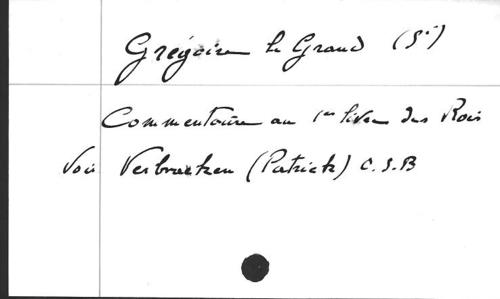 Grégoire le Grand (St)
Commentaire au 1er livre des Rois
Voir Verbraken (Patrick) O.S.B